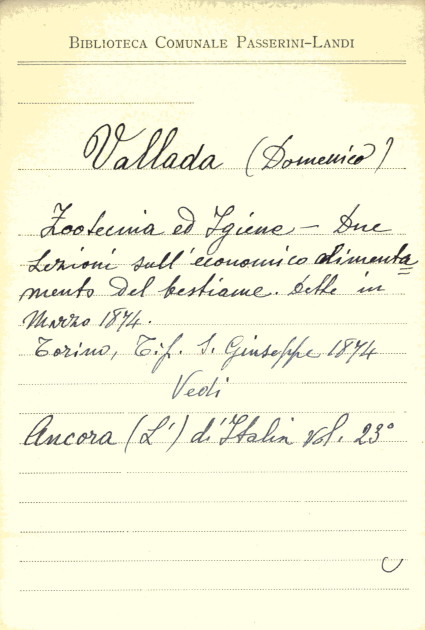 BIBLIOTECA COMUNALE PASSERINI-LANDI
Vallada (Domenico)
Zootecnia ed Igiene - Due
Lezioni sull'economico alimenta=
mento del bestiame. Dette in
Marzo 1874.
Torino, Tip. S. Giuseppe 1874
Vedi
Ancora (L') d'Italia vol. 23°